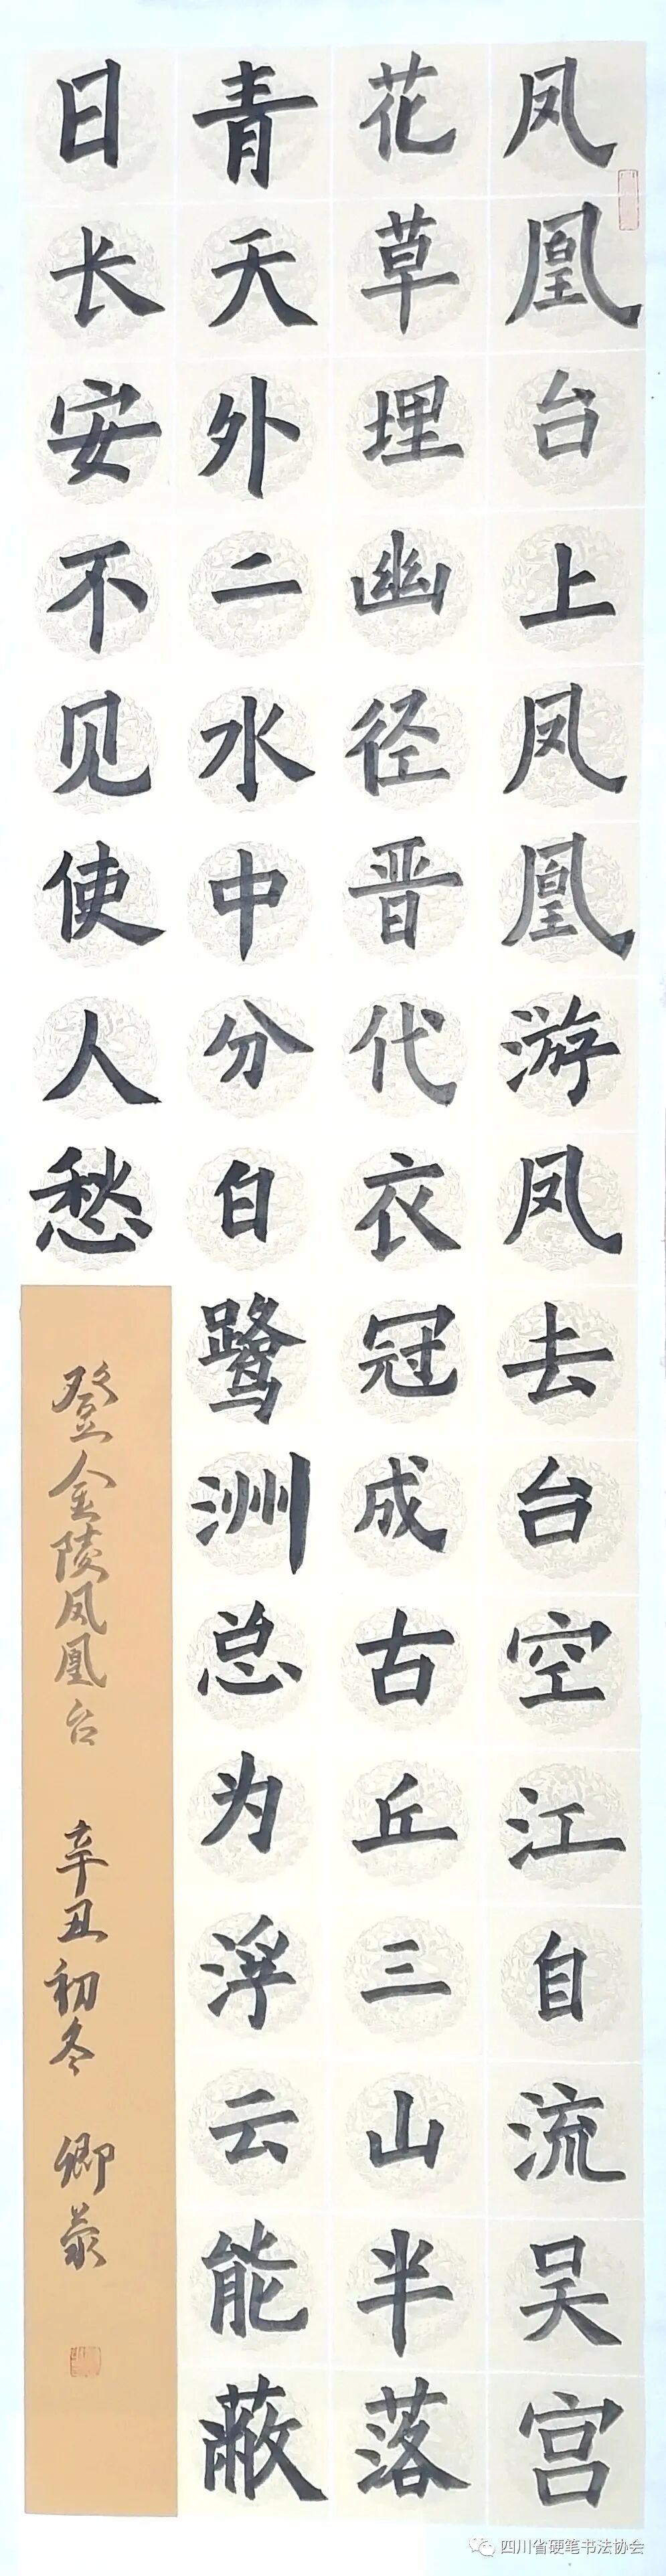 凤凰台上凤凰游凤去台空江自流吴宫
花草埋幽径晋代衣冠成古丘三山半落
青天外二水中分白鹭洲总为浮云能蔽
日长安不见使人愁
登金陵凤凰台 辛丑初冬 卿
四川省硬笔书法协会